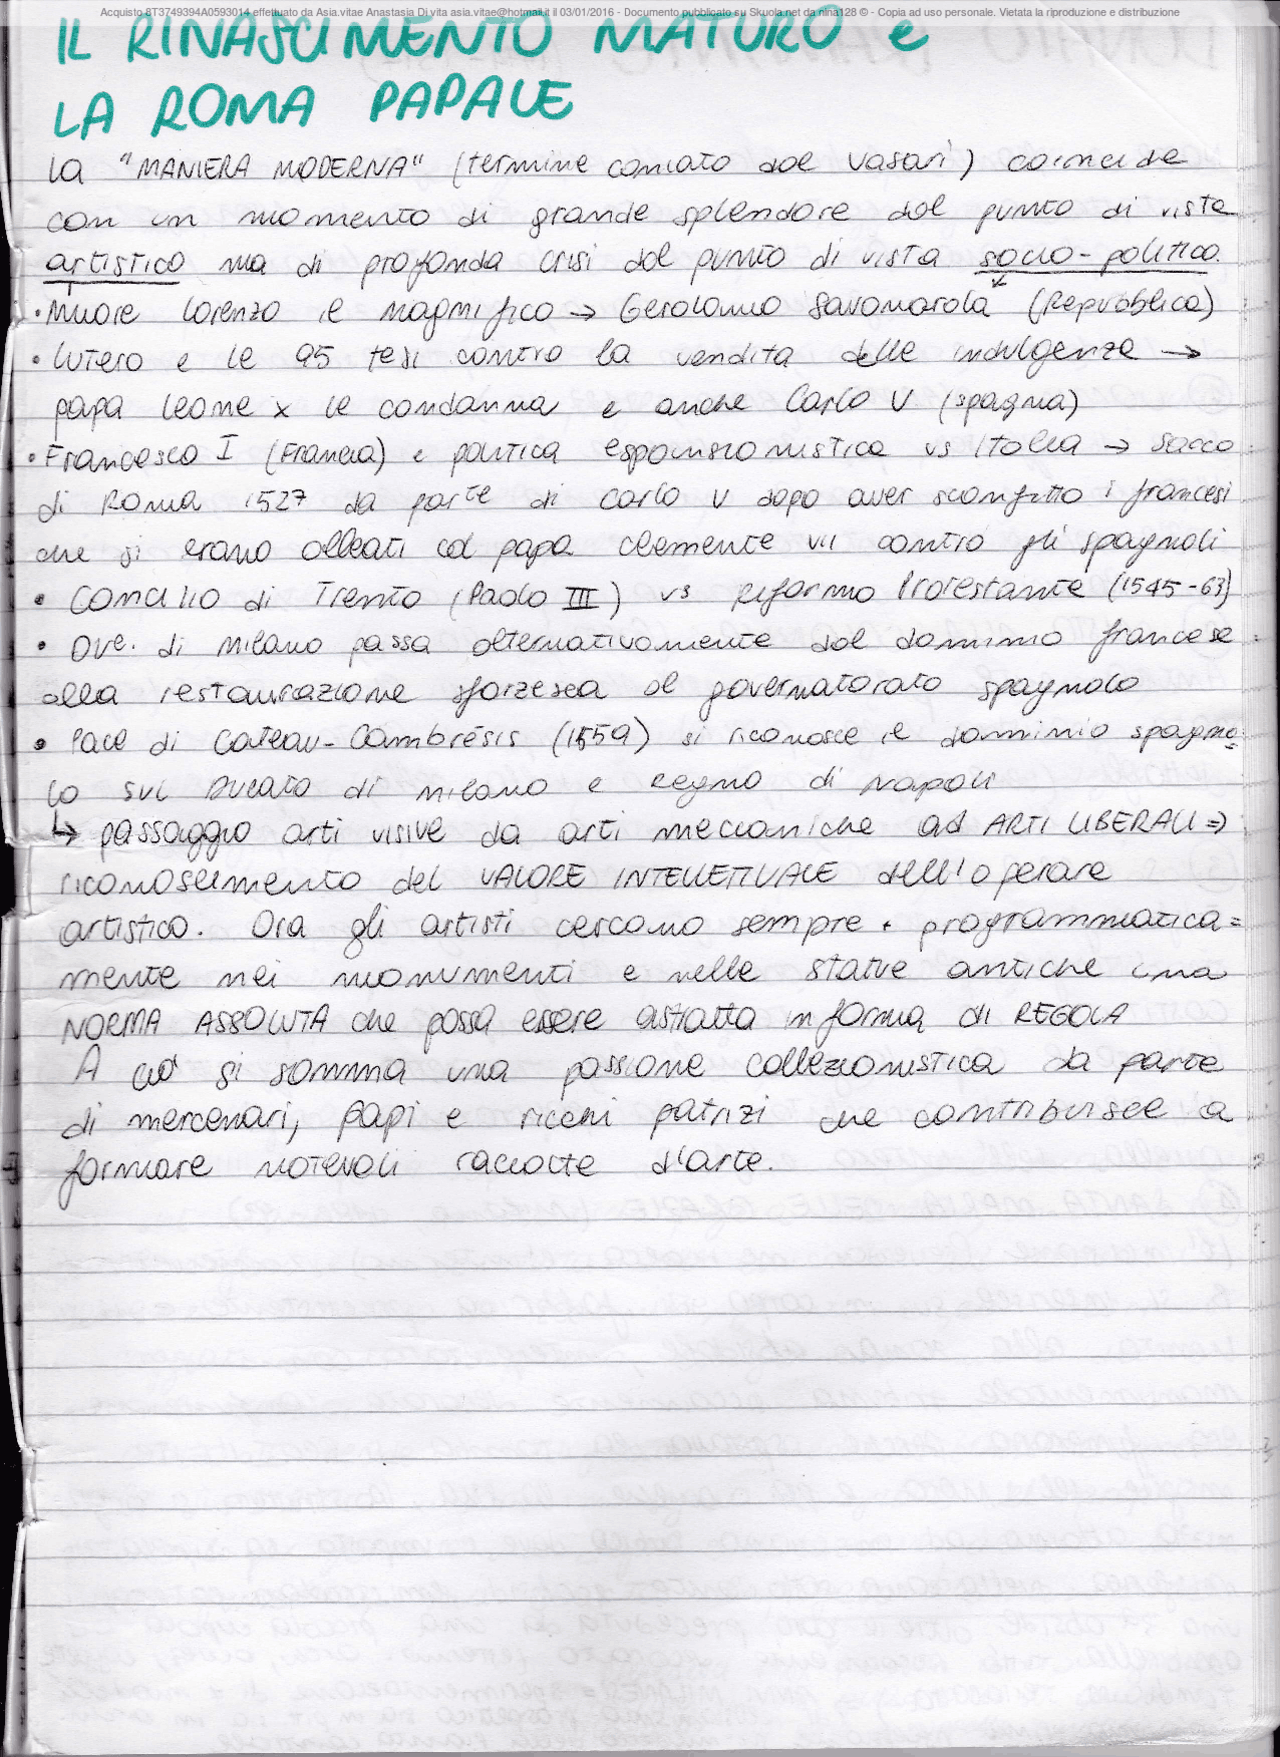 Acquisto 8T3749394A0593014 effettuato da Asia.vitae Anastasia Di.vita asia.vitae@hotmail.it il 03/01/2016 - Documento pubblicato su Skuola.net da nina128 © - Copia ad uso personale. Vietata la riproduzione e distribuzione
IL RINASCIMENTO MATURO e
LA ROMA PAPALE
La "MANIERA MODERNA" (termine coniato dal Vasari) coincide
con un momento di grande splendore dal punto di vista
artistico ma di profonda crisi dal punto di vista socio-politico.
• Muore Lorenzo il Magnifico → Gerolamo Savonarola (Repubblica)
• Lutero e le 95 tesi contro la vendita delle indulgenze →
papa Leone X le condanna e anche Carlo V (Spagna)
• Francesco I (Francia) e politica espansionistica vs Italia → Sacco
di Roma 1527 da parte di Carlo V dopo aver sconfitto i francesi
che si erano alleati col papa Clemente VII contro gli spagnoli
• Concilio di Trento (Paolo III) vs Riforma Protestante (1545-63)
• Ove. di Milano passa alternativamente dal dominio francese
alla restaurazione sforzesca al governatorato spagnolo
• Pace di Cateau-Cambrésis (1559) si riconosce il dominio spagno=
lo sul Ducato di Milano e Regno di Napoli
↳ passaggio arti visive da arti meccaniche ad ARTI LIBERALI ⇒
riconoscimento del VALORE INTELLETTUALE dell'operare
artistico. Ora gli artisti cercano sempre + programmatica=
mente nei monumenti e nelle statue antiche una
NORMA ASSOLUTA che possa essere astratta in forma di REGOLA
A ciò si somma una passione collezionistica da parte
di mercenari, papi e ricchi patrizi che contribuisce a
formare notevoli raccolte d'arte.